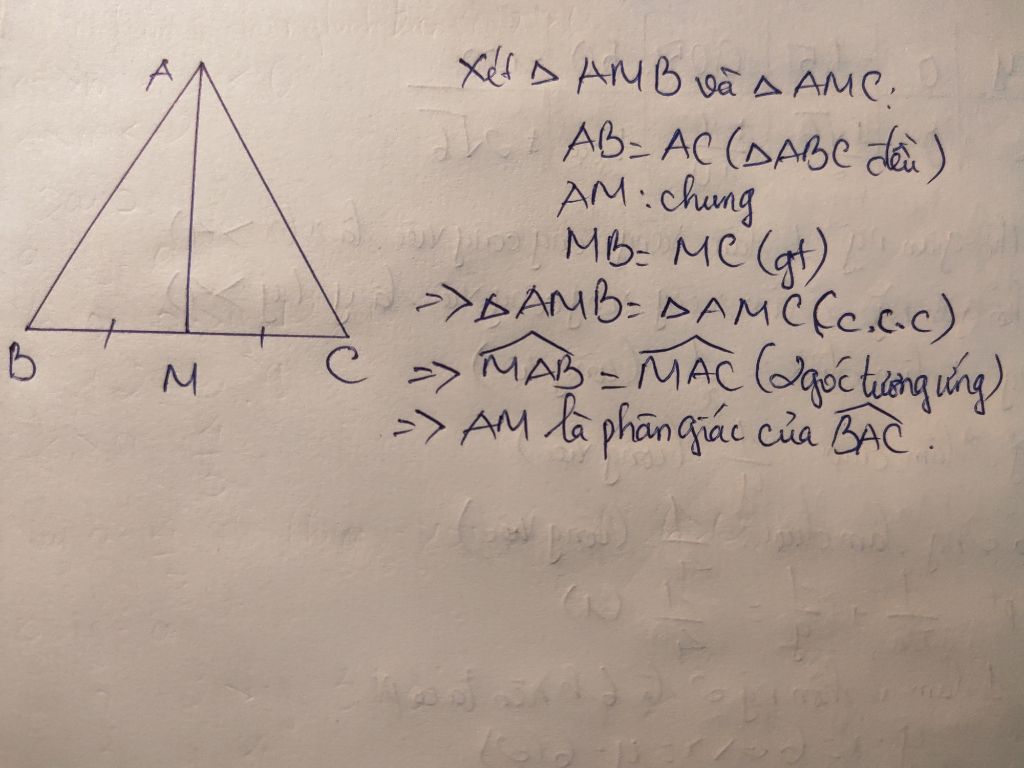 A
B
M
C
Xét △ AMB và △ AMC:
AB = AC (△ABC đều)
AM : chung
MB = MC (gt)
=> △AMB = △AMC (c.c.c)
=> \widehat{MAB} = \widehat{MAC} (2 góc tương ứng)
=> AM là phân giác của \widehat{BAC}.